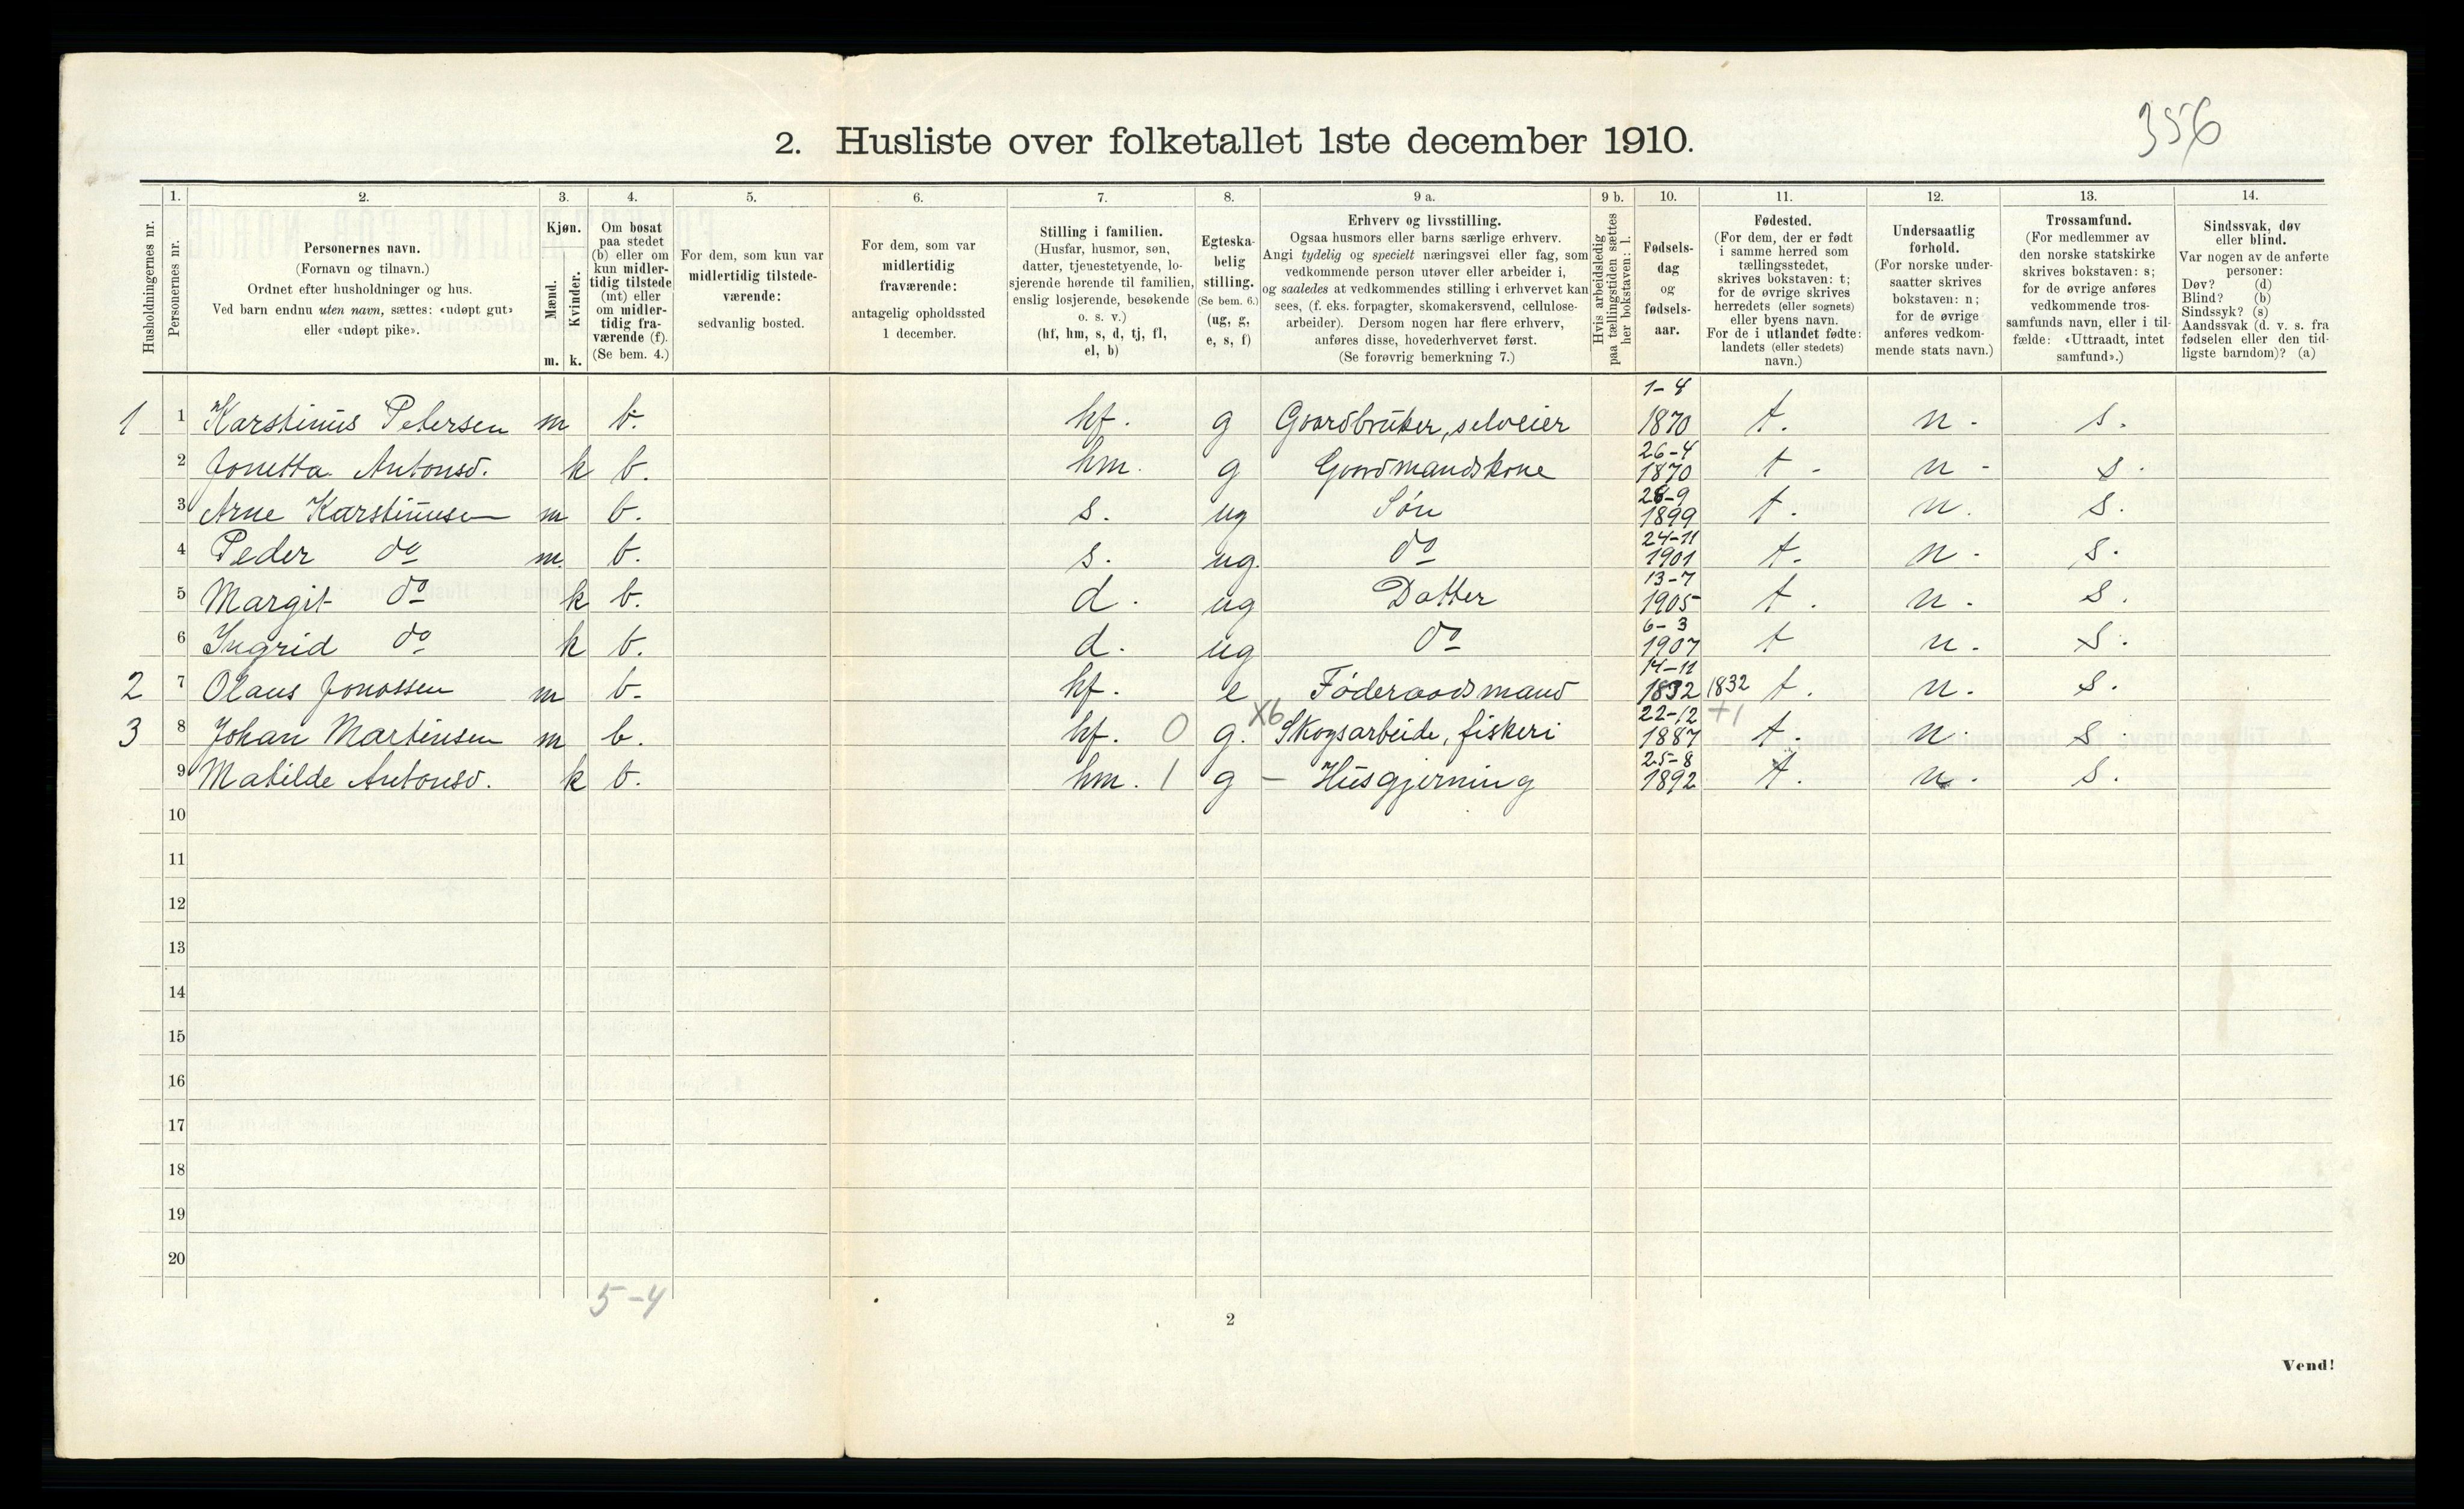 356
2. Husliste over folketallet 1ste december 1910.
Husholdningernes nr.
1.
Personernes nr.
2.
Personernes navn.
(Fornavn og tilnavn.)
Ordnet efter husholdninger og hus.
Ved barn endnu uten navn, sættes: «udøpt gut»
eller «udøpt pike».
3.
Kjøn.
Mænd.
Kvinder.
m. k.
4.
Om bosat
paa stedet
(b) eller om
kun midler-
tidig tilstede
(mt) eller
om midler-
tidig fra-
værende (f).
(Se bem. 4.)
5.
For dem, som kun var
midlertidig tilstede-
værende:
sedvanlig bosted.
6.
For dem, som var
midlertidig
fraværende:
antagelig opholdssted
1 december.
7.
Stilling i familien.
(Husfar, husmor, søn,
datter, tjenestetyende, lo-
sjerende hørende til familien,
enslig losjerende, besøkende
o. s. v.)
(hf, hm, s, d, tj, fl,
el, b)
8.
Egteska-
belig
stilling.
(Se bem. 6.)
(ug, g,
e, s, f)
9 a.
Erhverv og livsstilling.
Ogsaa husmors eller barns særlige erhverv.
Angi tydelig og specielt næringsvei eller fag, som
vedkommende person utøver eller arbeider i,
og saaledes at vedkommendes stilling i erhvervet kan
sees, (f. eks. forpagter, skomakersvend, cellulose-
arbeider). Dersom nogen har flere erhverv,
anføres disse, hovederhvervet først.
(Se forøvrig bemerkning 7.)
9 b.
Hvis arbeidsledig
paa tællingstiden sættes
her bokstaven: l.
10.
Fødsels-
dag
og
fødsels-
aar.
11.
Fødested.
(For dem, der er født
i samme herred som
tællingsstedet,
skrives bokstaven: t;
for de øvrige skrives
herredets (eller sognets)
eller byens navn.
For de i utlandet fødte:
landets (eller stedets)
navn.)
12.
Undersaatlig
forhold.
(For norske under-
saatter skrives
bokstaven: n;
for de øvrige
anføres vedkom-
mende stats navn.)
13.
Trossamfund.
(For medlemmer av
den norske statskirke
skrives bokstaven: s;
for de øvrige anføres
vedkommende tros-
samfunds navn, eller i til-
fælde: «Uttraadt, intet
samfund».)
14.
Sindssvak, døv
eller blind.
Var nogen av de anførte
personer:
Døv? (d)
Blind? (b)
Sindssyk? (s)
Aandssvak (d. v. s. fra
fødselen eller den tid-
ligste barndom)? (a)
1 1 Karstinus Petersen m b. hf. g Gaardbruker, selveier 1-4 1870 t. n. s.
2 Jonetta Antonsd. k b. hm. g Gaardmandskone 26-4 1870 t. n. s.
3 Arne Karstinusen m b. s. ug Søn 28-9 1899 t. n. s.
4 Peder do m b. s. ug. do 24-11 1901 t. n. s.
5 Margit do k b. d. ug Datter 13-7 1905 t. n. s.
6 Ingrid do k b. d. ug do 6-3 1907 t n. s.
2 7 Olaus Jonassen m b. hf. e Føderaadsmand 14-11 1832 1832 t. n. s.
3 8 Johan Martinsen m b. hf. 0 g. X6 Skogsarbeide, fiskeri 22-12 1887 +1 t. n. s
9 Matilde Antonsd. k b. hm. 1 g - Husgjerning 25-8 1892 t. n. s.
10
11
12
13
14
15
16
17
18
19
20
5-4
2
Vend!